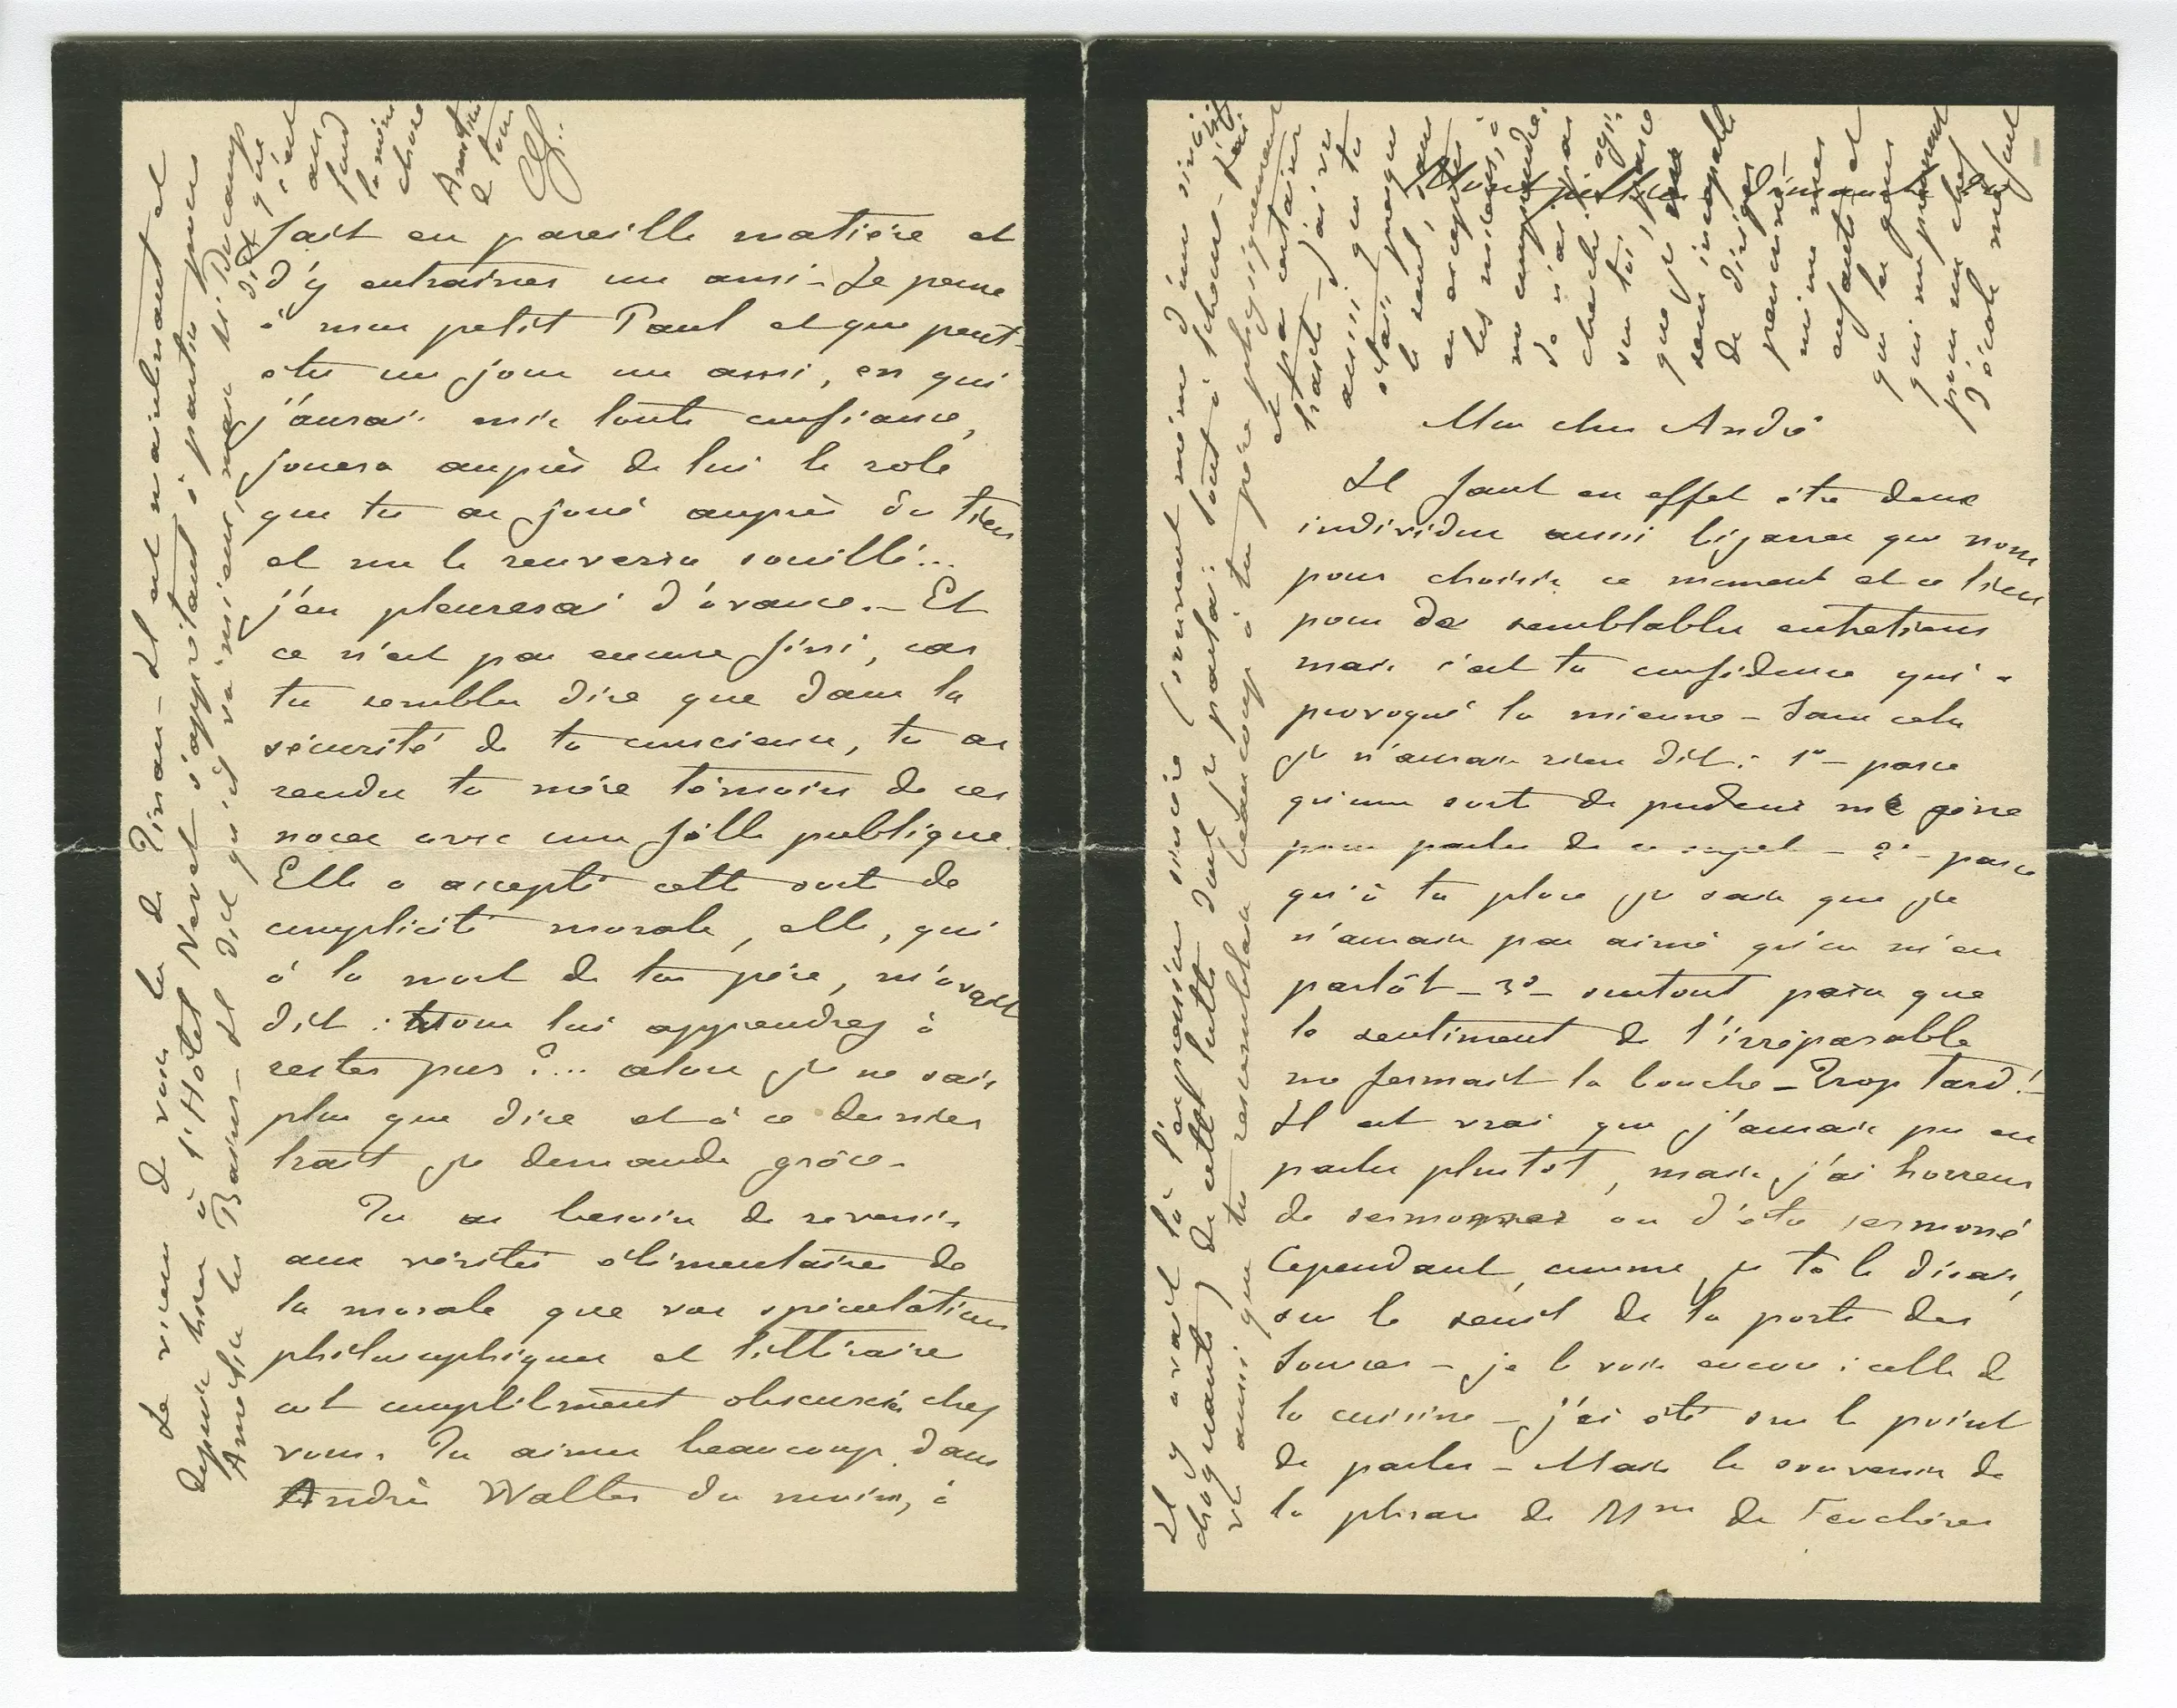 Montpellier Dimanche
Mon cher André
Il faut en effet être deux
individus aussi bizarres que nous
pour choisir ce moment et ce lieu
pour de semblables entretiens
mais c'est ta confidence qui a
provoqué la mienne – Sans cela
je n'aurais rien dit : 1º – parce
qu'une sorte de pudeur me gêne
pour parler de ce sujet – 2º – parce
qu'à ta place je sais que je
n'aurais pas aimé qu'on m'en
parlât – 3º – surtout parce que
le sentiment de l'irréparable
me fermait la bouche – Trop tard ! –
Il est vrai que j'aurais pu en
parler plutôt, mais j'ai horreur
de sermonner ou d'être sermoné
Cependant, comme je te le disais,
sur le seuil de la porte des
Sources – je le vois encore : celle de
la cuisine – j'ai été sur le point
de parler – Mais le souvenir de
la phrase de Mme de Feuchères
Il y avait là l'expression encore (souvent même d'une sincérité
choquante) de cette lutte dont je parlai : tout à l'heure – j'ai
vu aussi que tu ressemblais beaucoup à ton père physiquement
et pas contraire
traits – J'ai vu
aussi que tu
étais presque
le seul, sans
en excepter
les meilleurs, à
me comprendre.
Je n'ai pas
cherché à agir
sur toi, parce
que je me
sens incapable
de diriger
personne –
même mes
enfants et
que les gens
qui me prennent
pour un chef
d'école me font
fait en pareille matière et
d'y entraîner un ami – Je pense
à mon petit Paul et que peut-
être un jour un ami, en qui
j'aurai mis toute confiance,
jouera auprès de lui le rôle
que tu as joué auprès du tien
et me le renverra souillé...
j'en pleurerai d'avance. – Et
ce n'est pas encore fini, car
tu sembles dire que dans la
sécurité de ta conscience, tu as
rendu ta mère témoin de ces
noces avec une fille publique.
Elle a accepté cette sorte de
complicité morale, elle, qui
à la mort de ton père, m'avait
dit : Vous lui apprendrez à
rester pur ?... alors je ne sais
plus que dire et à ce dernier
trait je demande grâce –
Tu as besoin de revenir
aux vérités élémentaires de
la morale que vos spéculations
philosophiques et littéraires
ont complètement obscurcies chez
vous. Tu aimes beaucoup, dans
André Walter du moins, à
Je viens de voir la de Pinon – Il est maintenant et
depuis hier à l'Hôtel Nevet s'apprêtant à partir pour
Amélie les Bains – Il dit qu'il va mieux, mais M. Ducamp
dit que
c'est
au
fond
la même
chose
Amitiés
à tous